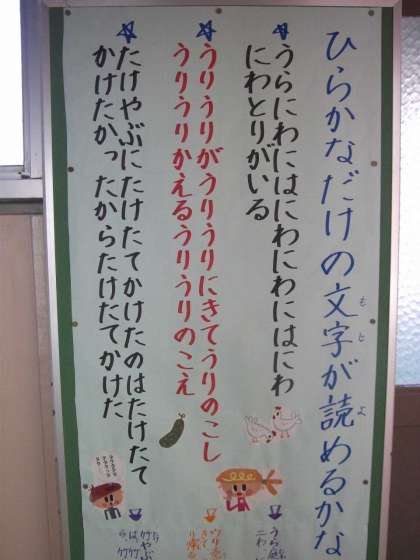 ひらかなだけの文字が読めるかな
もじ
よ
うらにわにはにわにわにはにわ
にわとりがいる
うりうりがうりうりにきてうりのこし
うりうりかえるうりうりのこえ
たけやぶにたけたてかけたのはたけたて
かけたかったからたけたてかけた